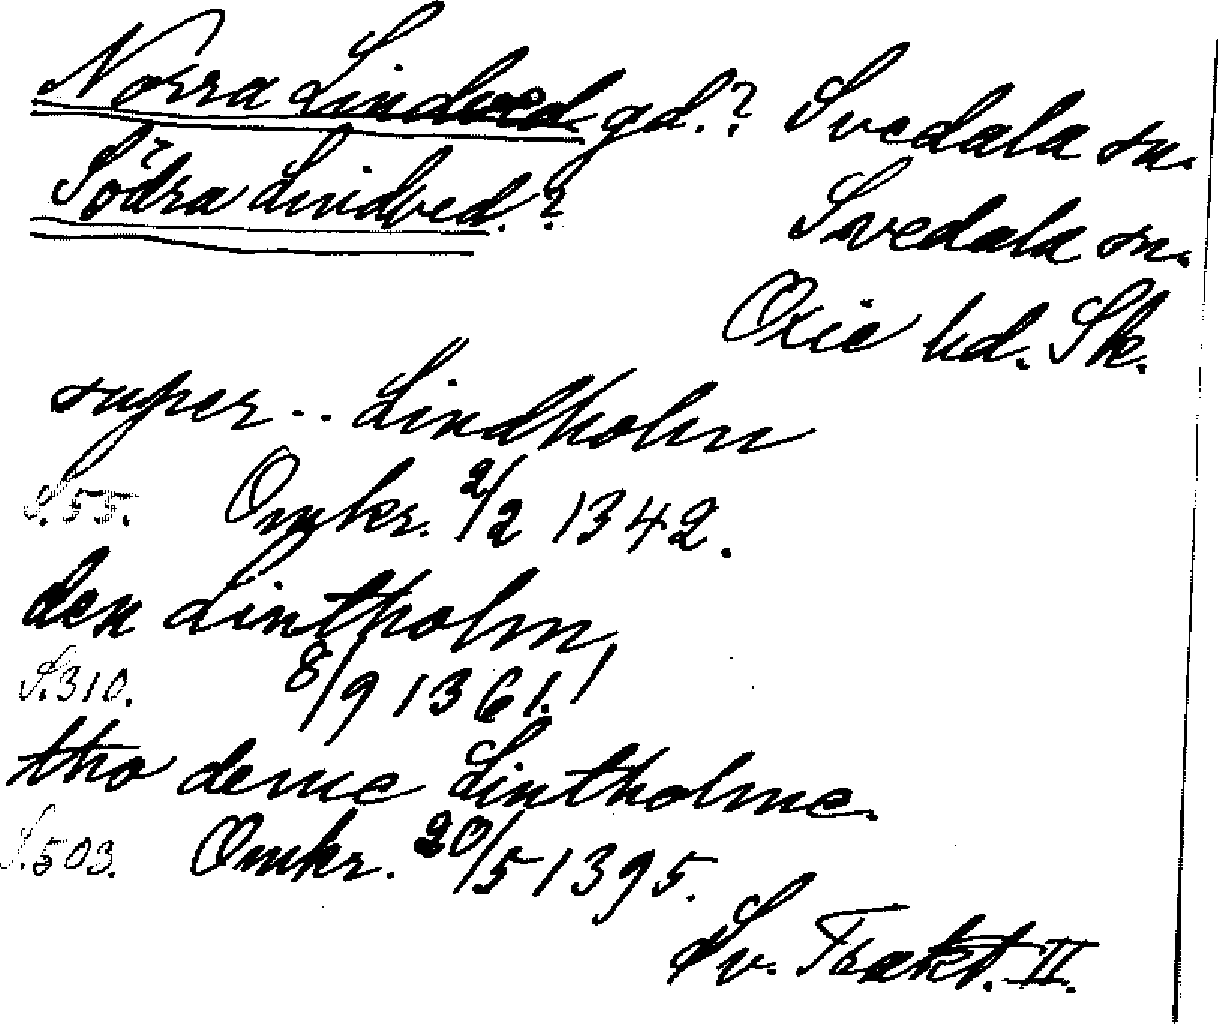 Norra Lindved gd.? Svedala sn.
Södra Lindved.? Svedala sn.
Oxie hd. Sk.
super .. Lindholm
S. 55. Omkr. 2/2 1342.
den Lintholm,
S. 310. 8/9 1361.
tho deme Lintholme.
S. 503. Omkr. 20/5 1395.
Sv. Trakt. II.